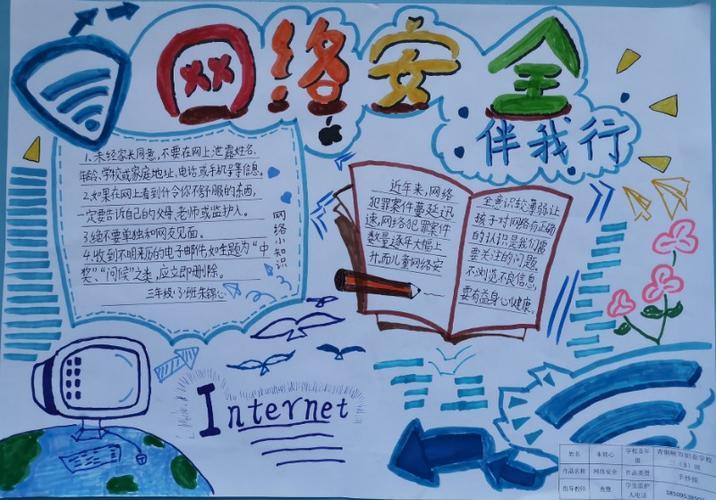 网络安全
伴我行
1.未经家长同意,不要在网上泄露姓名、
年龄、学校或家庭地址、电话或手机号等信息。
2.如果在网上看到什令你不舒服的东西,
一定要告诉自己的父母、老师或监护人。
3.绝不要单独和网友见面。
4.收到不明来历的电子邮件,如主题为“中
奖”“问候”之类,应立即删除。
三年级(3)班
网络小知识
近年来,网络
犯罪案件蔓延迅
速,网络犯罪案件
数量逐年大幅上
升,而儿童网络安
全意识较薄弱让
孩子对网络有正确
的认识是我们需
要关注的问题。
不浏览不良信息,
要有益身心健康。
Internet
姓名
学校及年级
作品名称 网络安全 作品类型 手抄报
指导教师
学生监护人电话